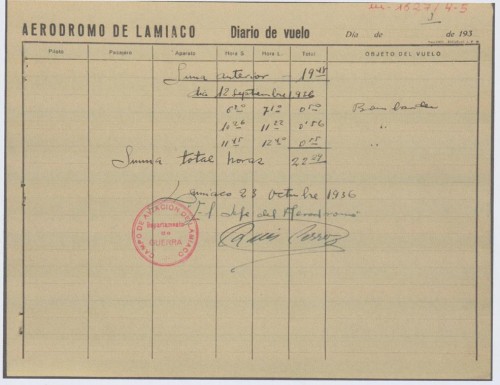 AERODROMO DE LAMIACO Diario de vuelo Día de de 193
Piloto Pasajero Aparato Hora S. Hora L. Total OBJETO DEL VUELO
Suma anterior - 19 48
Día 12 septiembre 1936
Bombardeo
10 26 11 22 0'56 "
11 45 "
Suma total horas 22 09
Lamiaco 23 octubre 1936
El Jefe del Aerodromo
CAMPO DE AVIACION DE LAMIACO
Departamento
de
GUERRA